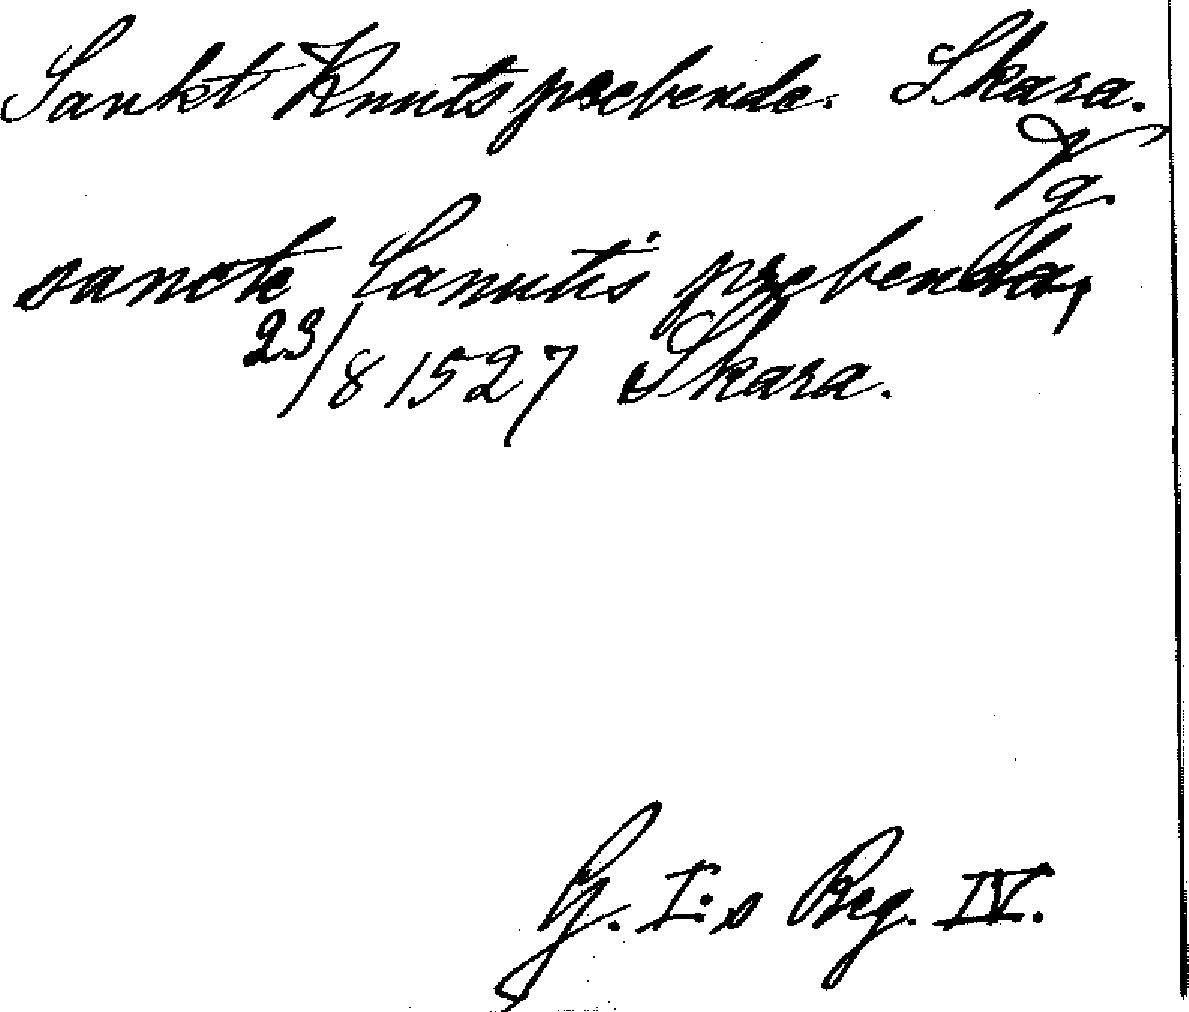 Sankt Knuts prebende. Skara.
Vg
sancte Canutis prebenda,
23/8 1527 Skara.
G. I:s Reg. IV.